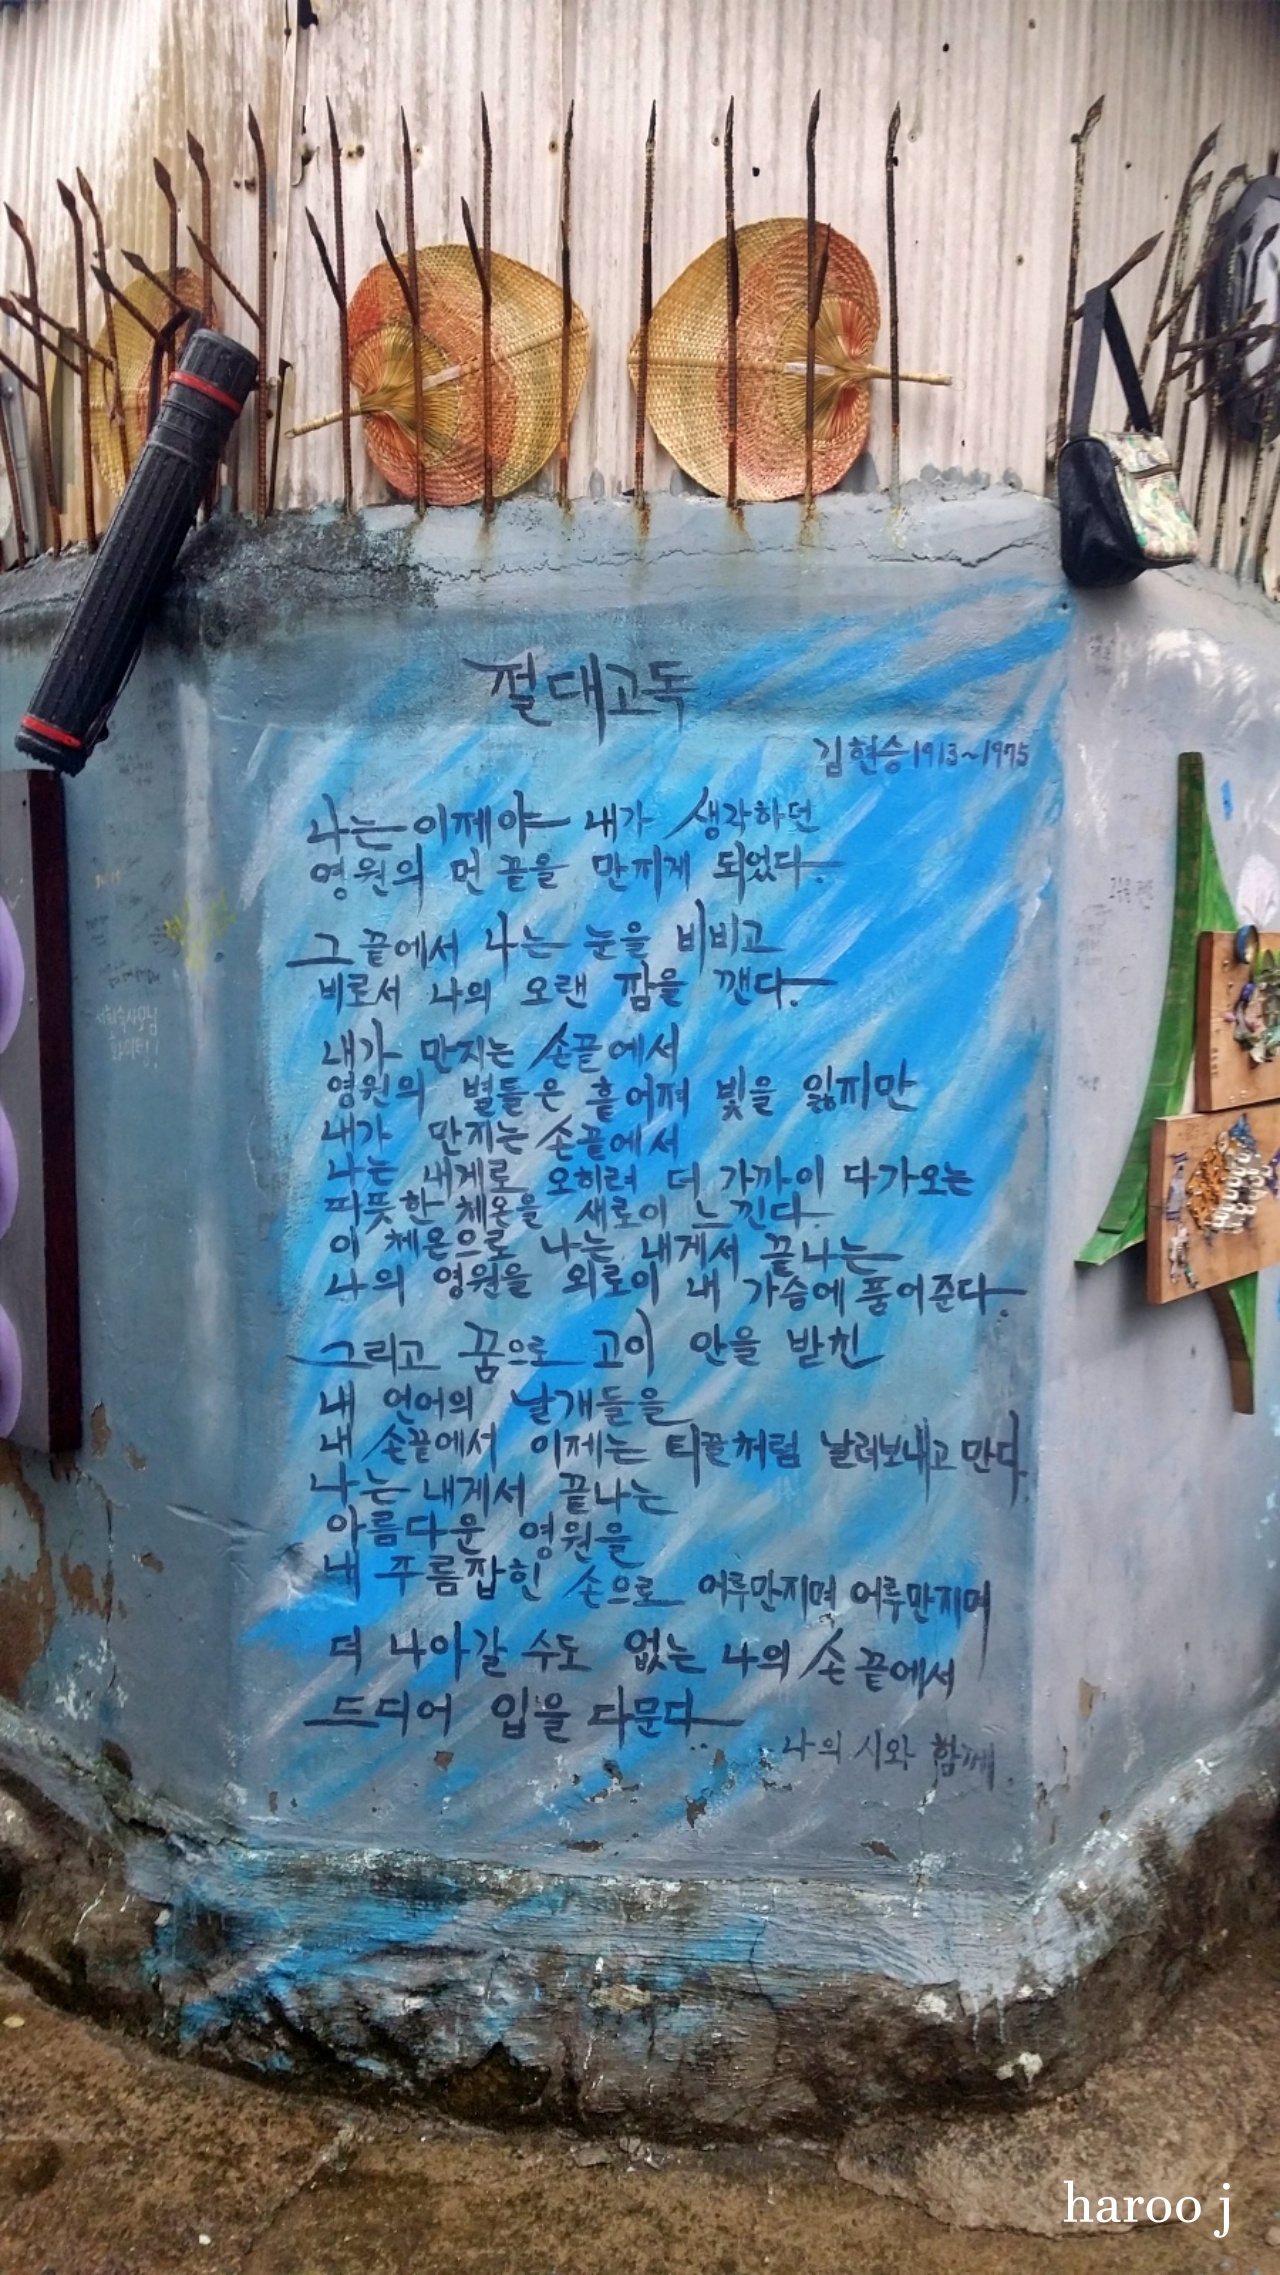 절대고독
김현승 1913~1975
나는 이제야 내가 생각하던
영원의 먼 끝을 만지게 되었다.
그 끝에서 나는 눈을 비비고
비로서 나의 오랜 잠을 깬다.
내가 만지는 손끝에서
영원의 별들은 흩어져 빛을 잃지만
내가 만지는 손끝에서
나는 내게로 오히려 더 가까이 다가오는
따뜻한 체온을 새로이 느낀다.
이 체온으로 나는 내게서 끝나는
나의 영원을 외로이 내 가슴에 품어준다.
그리고 꿈으로 고이 안을 받친
내 언어의 날개들을
내 손끝에서 이제는 티끌처럼 날려보내고 만다.
나는 내게서 끝나는
아름다운 영원을
내 주름잡힌 손으로 어루만지며 어루만지며
더 나아갈 수도 없는 나의 손끝에서
드디어 입을 다문다..
나의 시와 함께.
haroo j